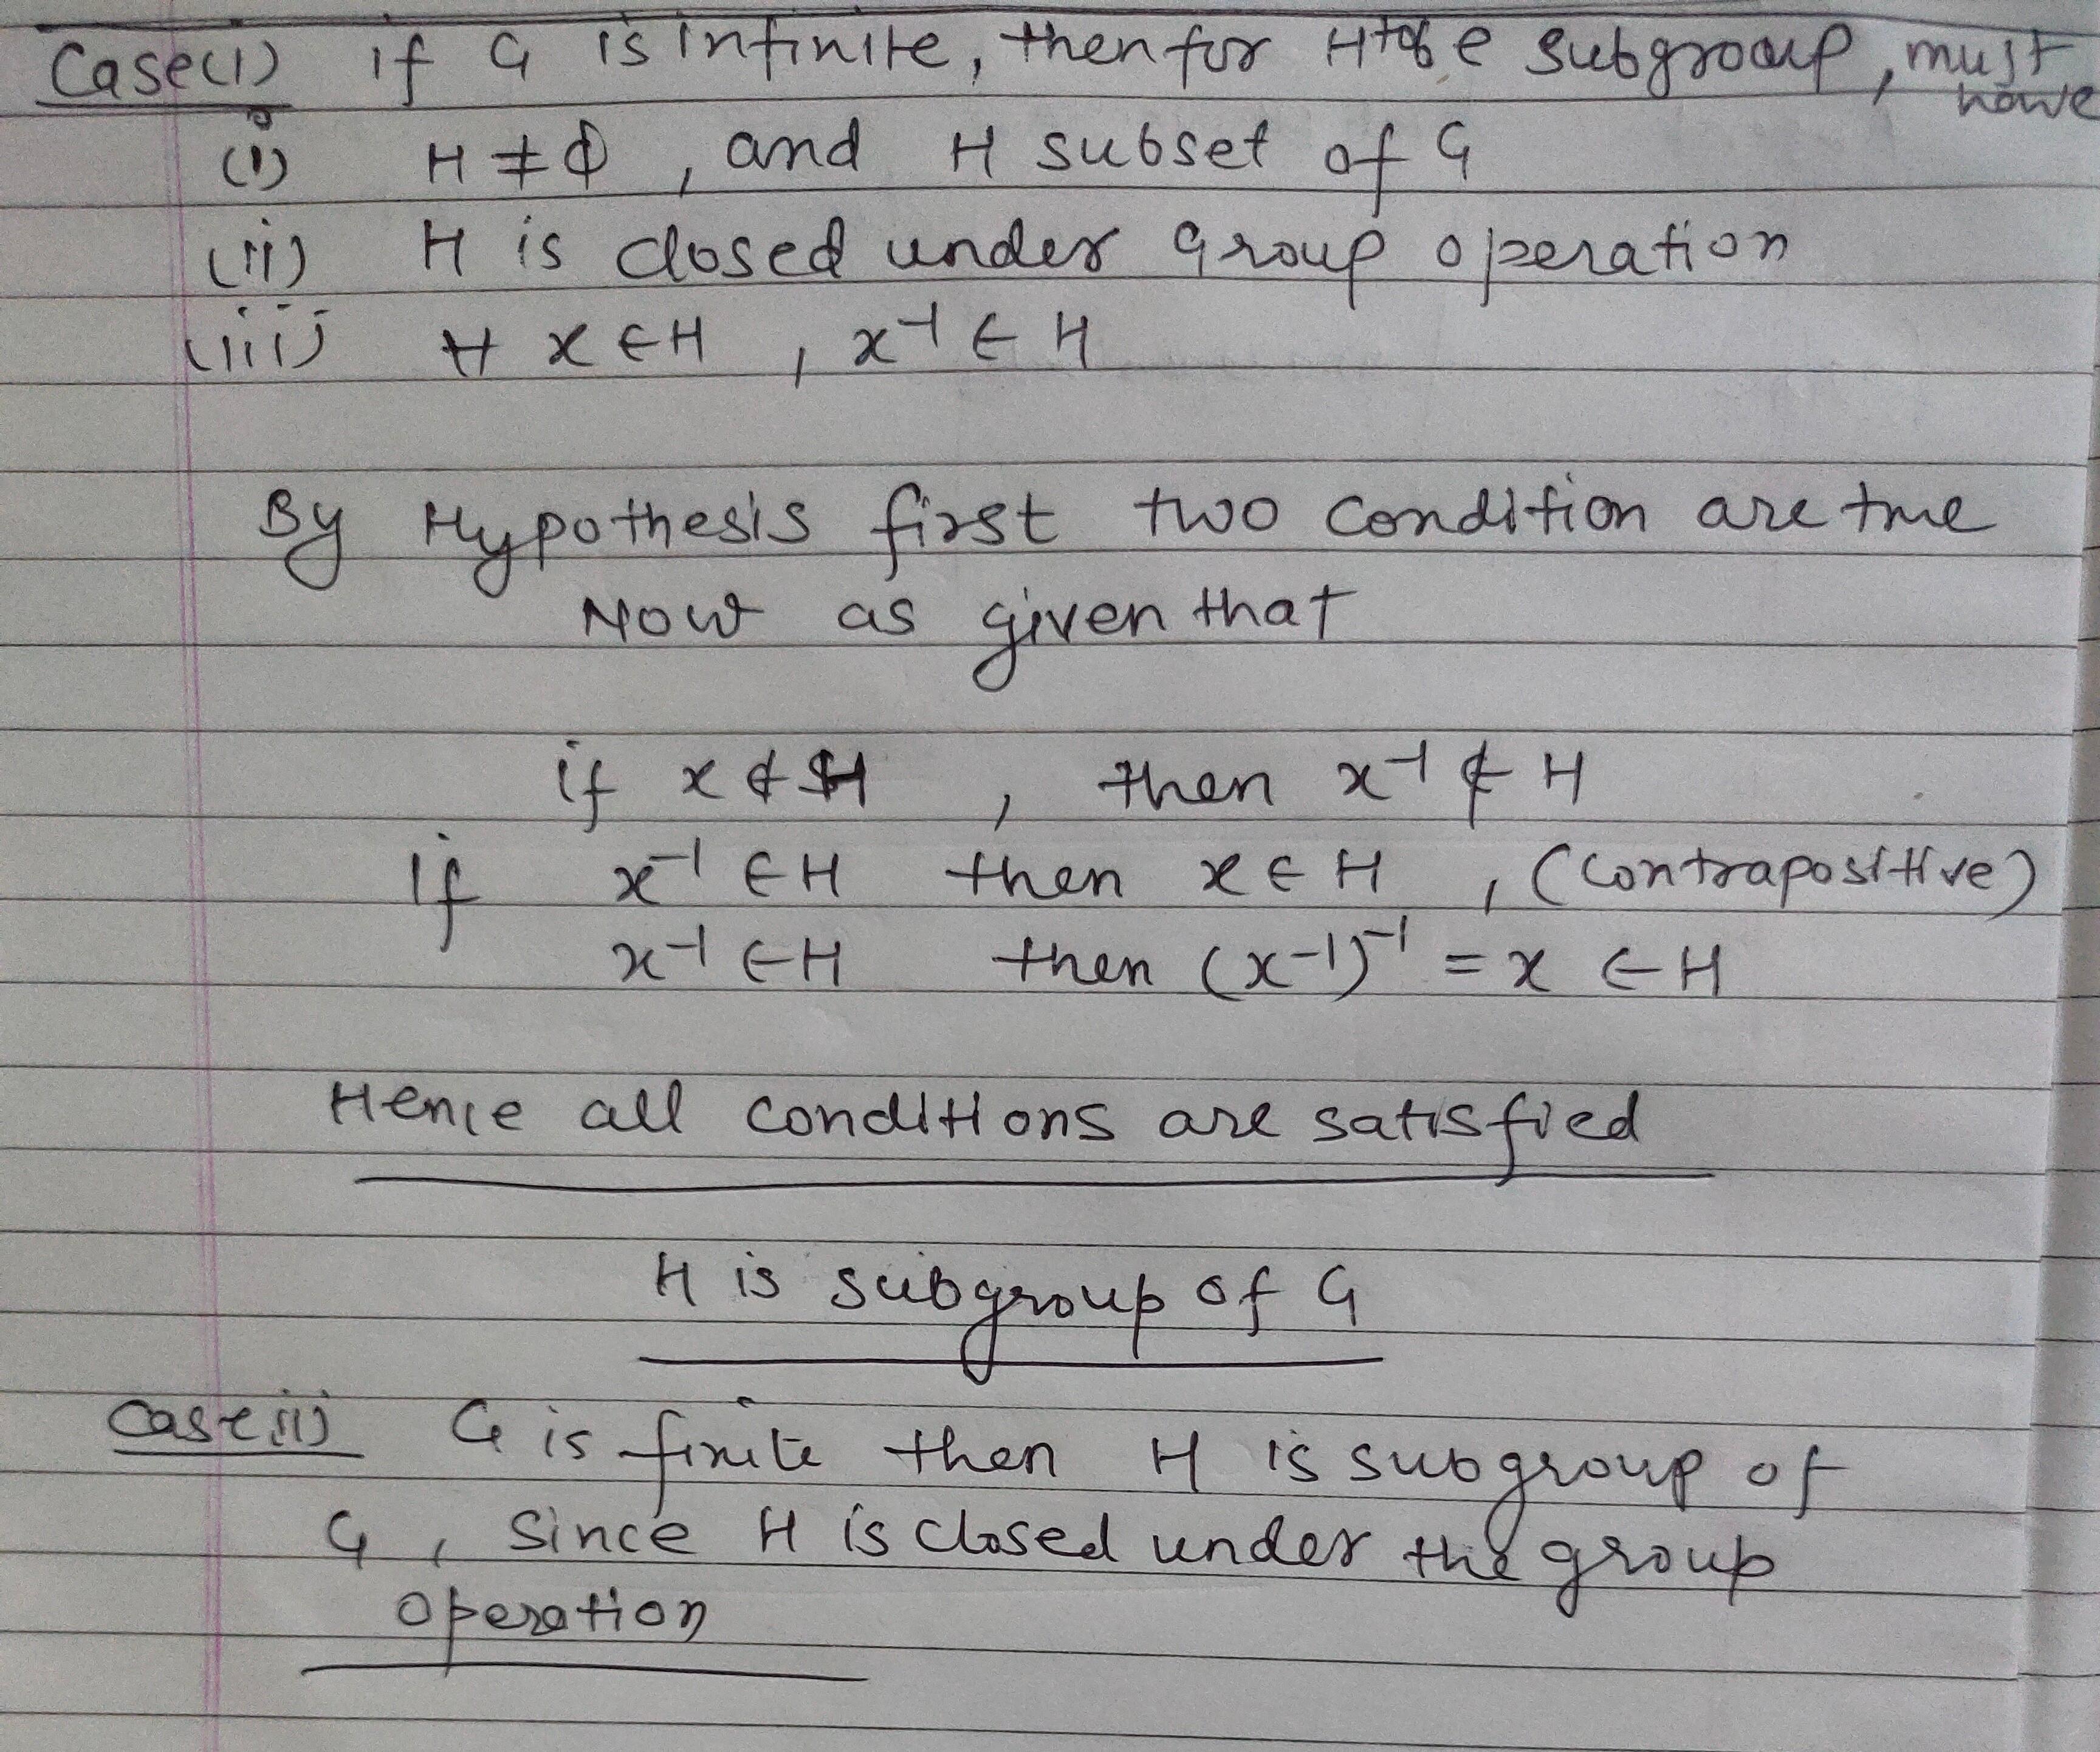 Case(1) if G is infinite, then for H to be subgroup, must have
(i) H ≠ ϕ, and H subset of G
(ii) H is closed under group operation
(iii) ∀ x ∈ H, x⁻¹ ∈ H
By Hypothesis first two condition are true
Now as given that
if x ∉ H, then x⁻¹ ∉ H
if x⁻¹ ∈ H then x ∈ H, (contrapositive)
x⁻¹ ∈ H then (x-1)⁻¹ = x ∈ H
Hence all conditions are satisfied
H is subgroup of G
Case(ii) G is finite then H is subgroup of
G, since H is closed under the group
operation